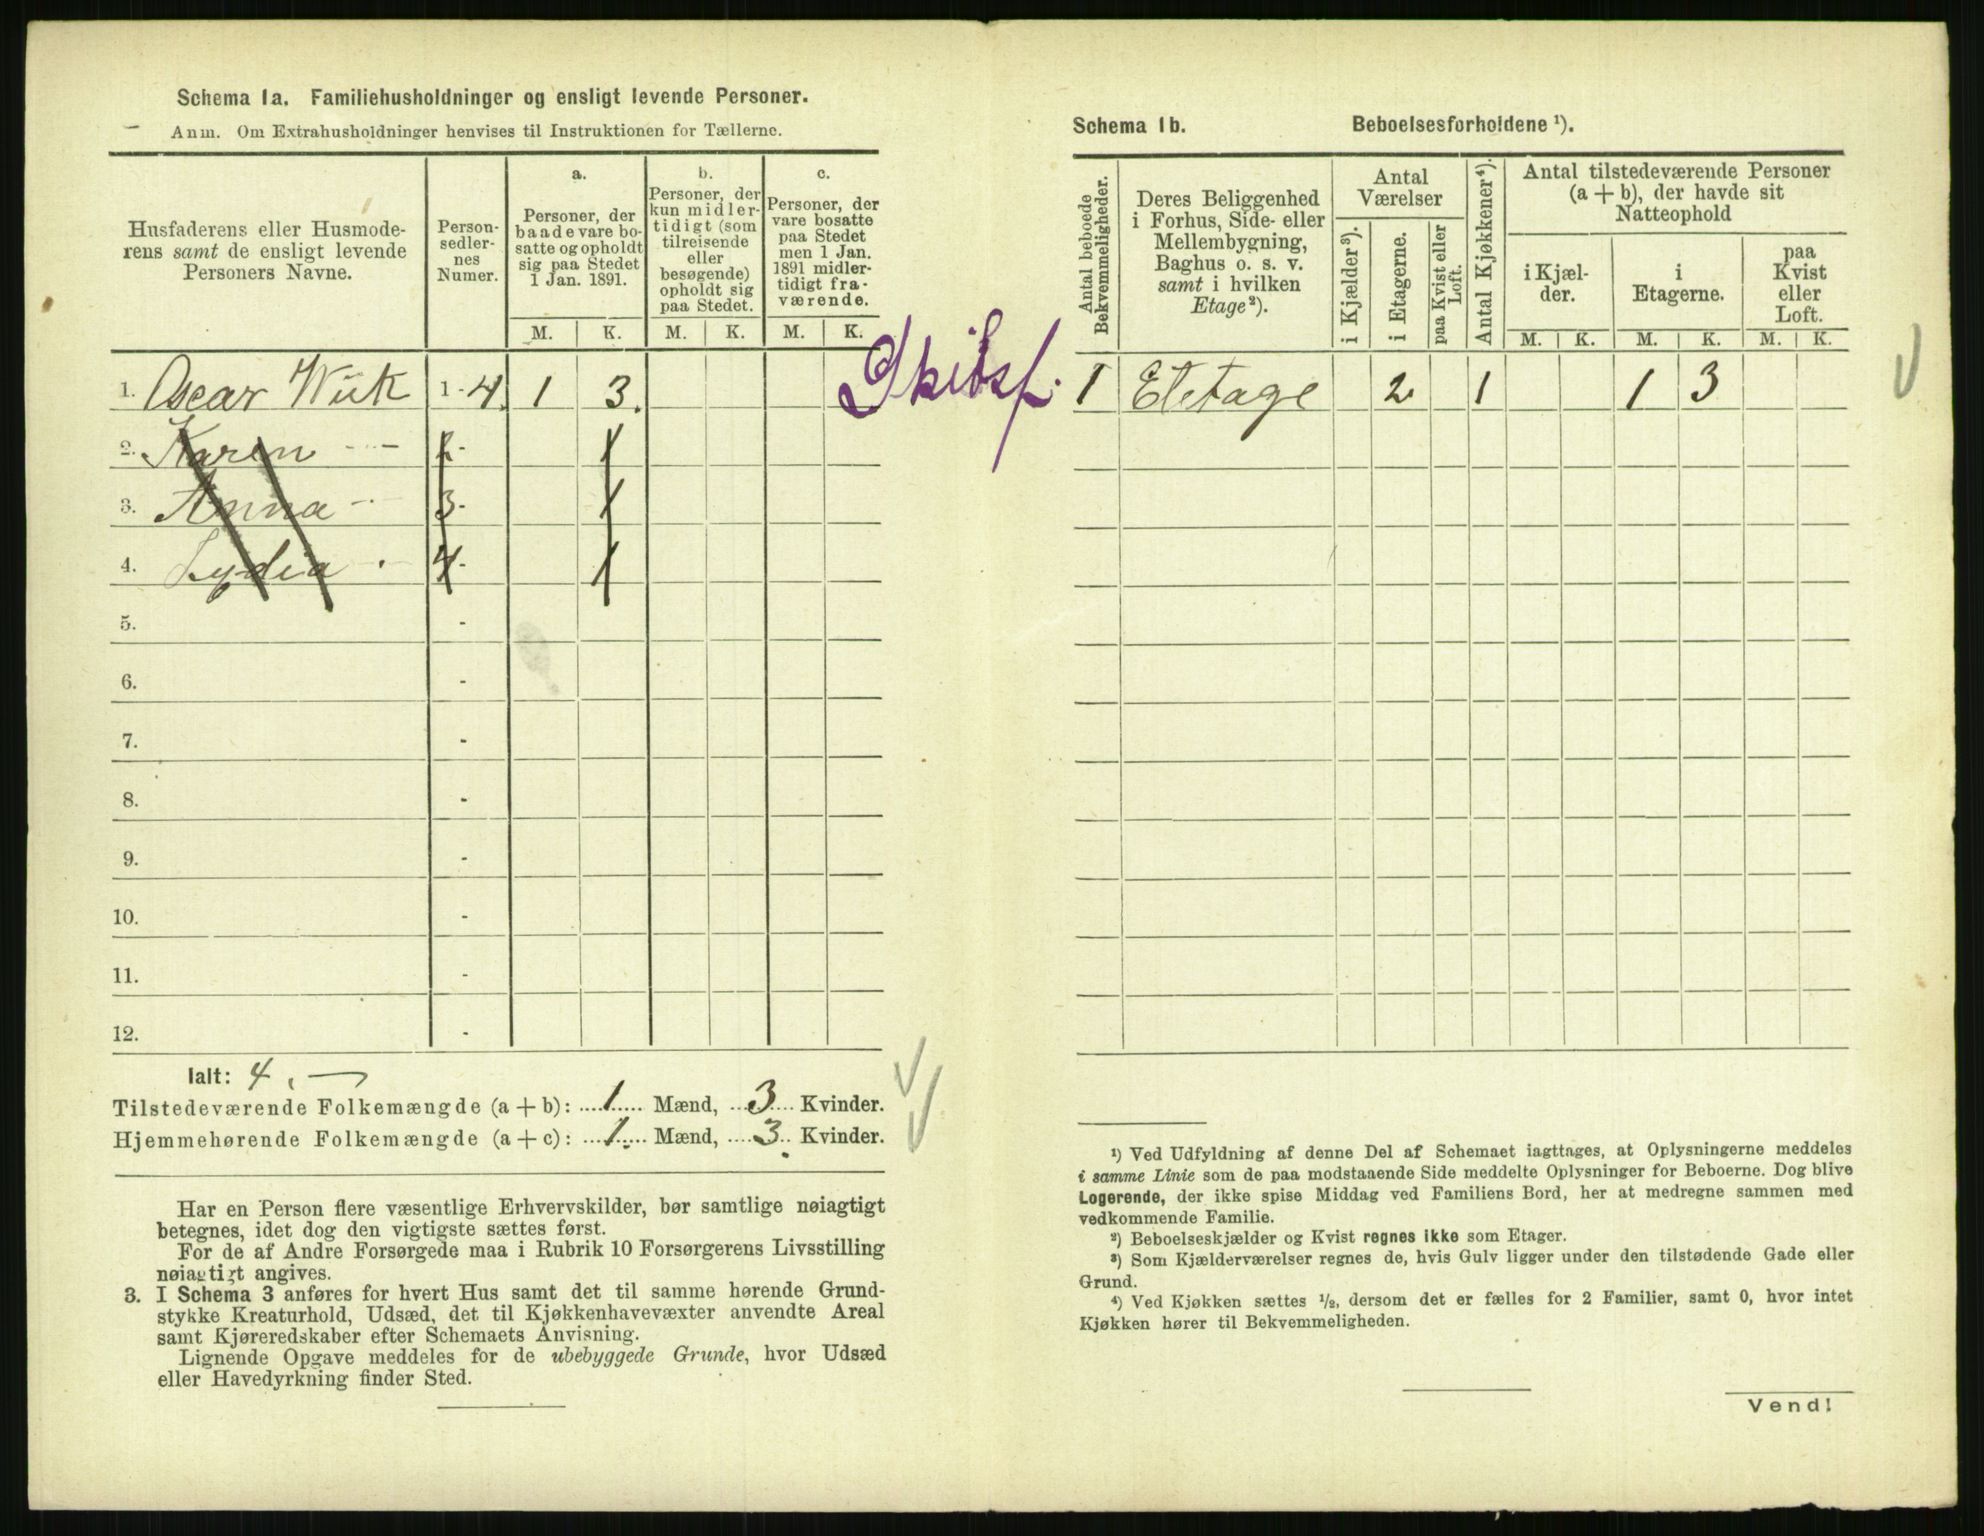 Schema 1a. Familiehusholdninger og ensligt levende Personer.
Anm. Om Extrahusholdninger henvises til Instruktionen for Tællerne.
Husfaderens eller Husmoderens samt de ensligt levende Personers Navne.
Person-
sedler-
nes
Numer.
a.
Personer, der
baade vare bo-
satte og opholdt
sig paa Stedet
1 Jan. 1891.
b.
Personer, der
kun midler-
tidigt (som
tilreisende
eller
besøgende)
opholdt sig
paa Stedet.
c.
Personer, der
vare bosatte
paa Stedet
men 1 Jan.
1891 midler-
tidigt fra-
værende.
M. K. M. K. M. K.
1. Oscar Wiik 1-4. 1 3.
2. Karen - - 2- 1
3. Anna - 3- 1
4. Lydia - 4- 1
5. -
6. -
7. -
8. -
9. -
10. -
11. -
12. -
Ialt: 4. —
Tilstedeværende Folkemængde (a + b): 1 Mænd, 3 Kvinder.
Hjemmehørende Folkemængde (a + c): 1 Mænd, 3 Kvinder.
Har en Person flere væsentlige Erhvervskilder, bør samtlige nøiagtigt
betegnes, idet dog den vigtigste sættes først.
For de af Andre Forsørgede maa i Rubrik 10 Forsørgerens Livsstilling
nøiagtigt angives.
3. I Schema 3 anføres for hvert Hus samt det til samme hørende Grund-
stykke Kreaturhold, Udsæd, det til Kjøkkenhavevæxter anvendte Areal
samt Kjøreredskaber efter Schemaets Anvisning.
Lignende Opgave meddeles for de ubebyggede Grunde, hvor Udsæd
eller Havedyrkning finder Sted.
Schema 1b. Beboelsesforholdene ¹).
Antal beboede
Bekvemmeligheder.
Deres Beliggenhed
i Forhus, Side- eller
Mellembygning,
Baghus o. s. v.
samt i hvilken
Etage²).
Antal
Værelser
i Kjælder³).
i Etagerne.
paa Kvist eller
Loft.
Antal Kjøkkener⁴).
Antal tilstedeværende Personer
(a + b), der havde sit
Natteophold
i Kjæl-
der.
i
Etagerne.
paa
Kvist
eller
Loft.
M. K. M. K. M. K.
1 Etetage 2 1 1 3
¹) Ved Udfyldning af denne Del af Schemaet iagttages, at Oplysningerne meddeles
i samme Linie som de paa modstaaende Side meddelte Oplysninger for Beboerne. Dog blive
Logerende, der ikke spise Middag ved Familiens Bord, her at medregne sammen med
vedkommende Familie.
²) Beboelseskjælder og Kvist regnes ikke som Etager.
³) Som Kjælderværelser regnes de, hvis Gulv ligger under den tilstødende Gade eller
Grund.
⁴) Ved Kjøkken sættes ½, dersom det er fælles for 2 Familier, samt 0, hvor intet
Kjøkken hører til Bekvemmeligheden.
Vend!